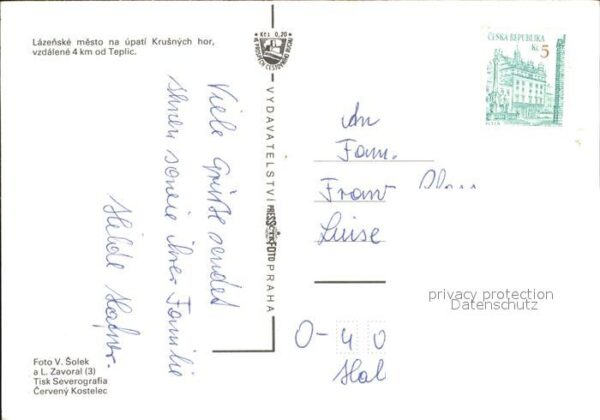 Lázeňské město na úpatí Krušných hor,
vzdálené 4 km od Teplic.
Kčs 0,20
VE PROSPĚCH CESTOVNÍHO RUCHU
ČESKÁ REPUBLIKA
Kč 5
PLZEŇ
Viele Grüße sendet
Ihnen sowie ihrer Familie
Hilde
VYDAVATELSTVÍ PRESSFOTO PRAHA
An
Fam.
Franz
Luise
O-40
Hal
privacy protection
Datenschutz
Foto V. Šolek
a L. Zavoral (3)
Tisk Severografia
Červený Kostelec